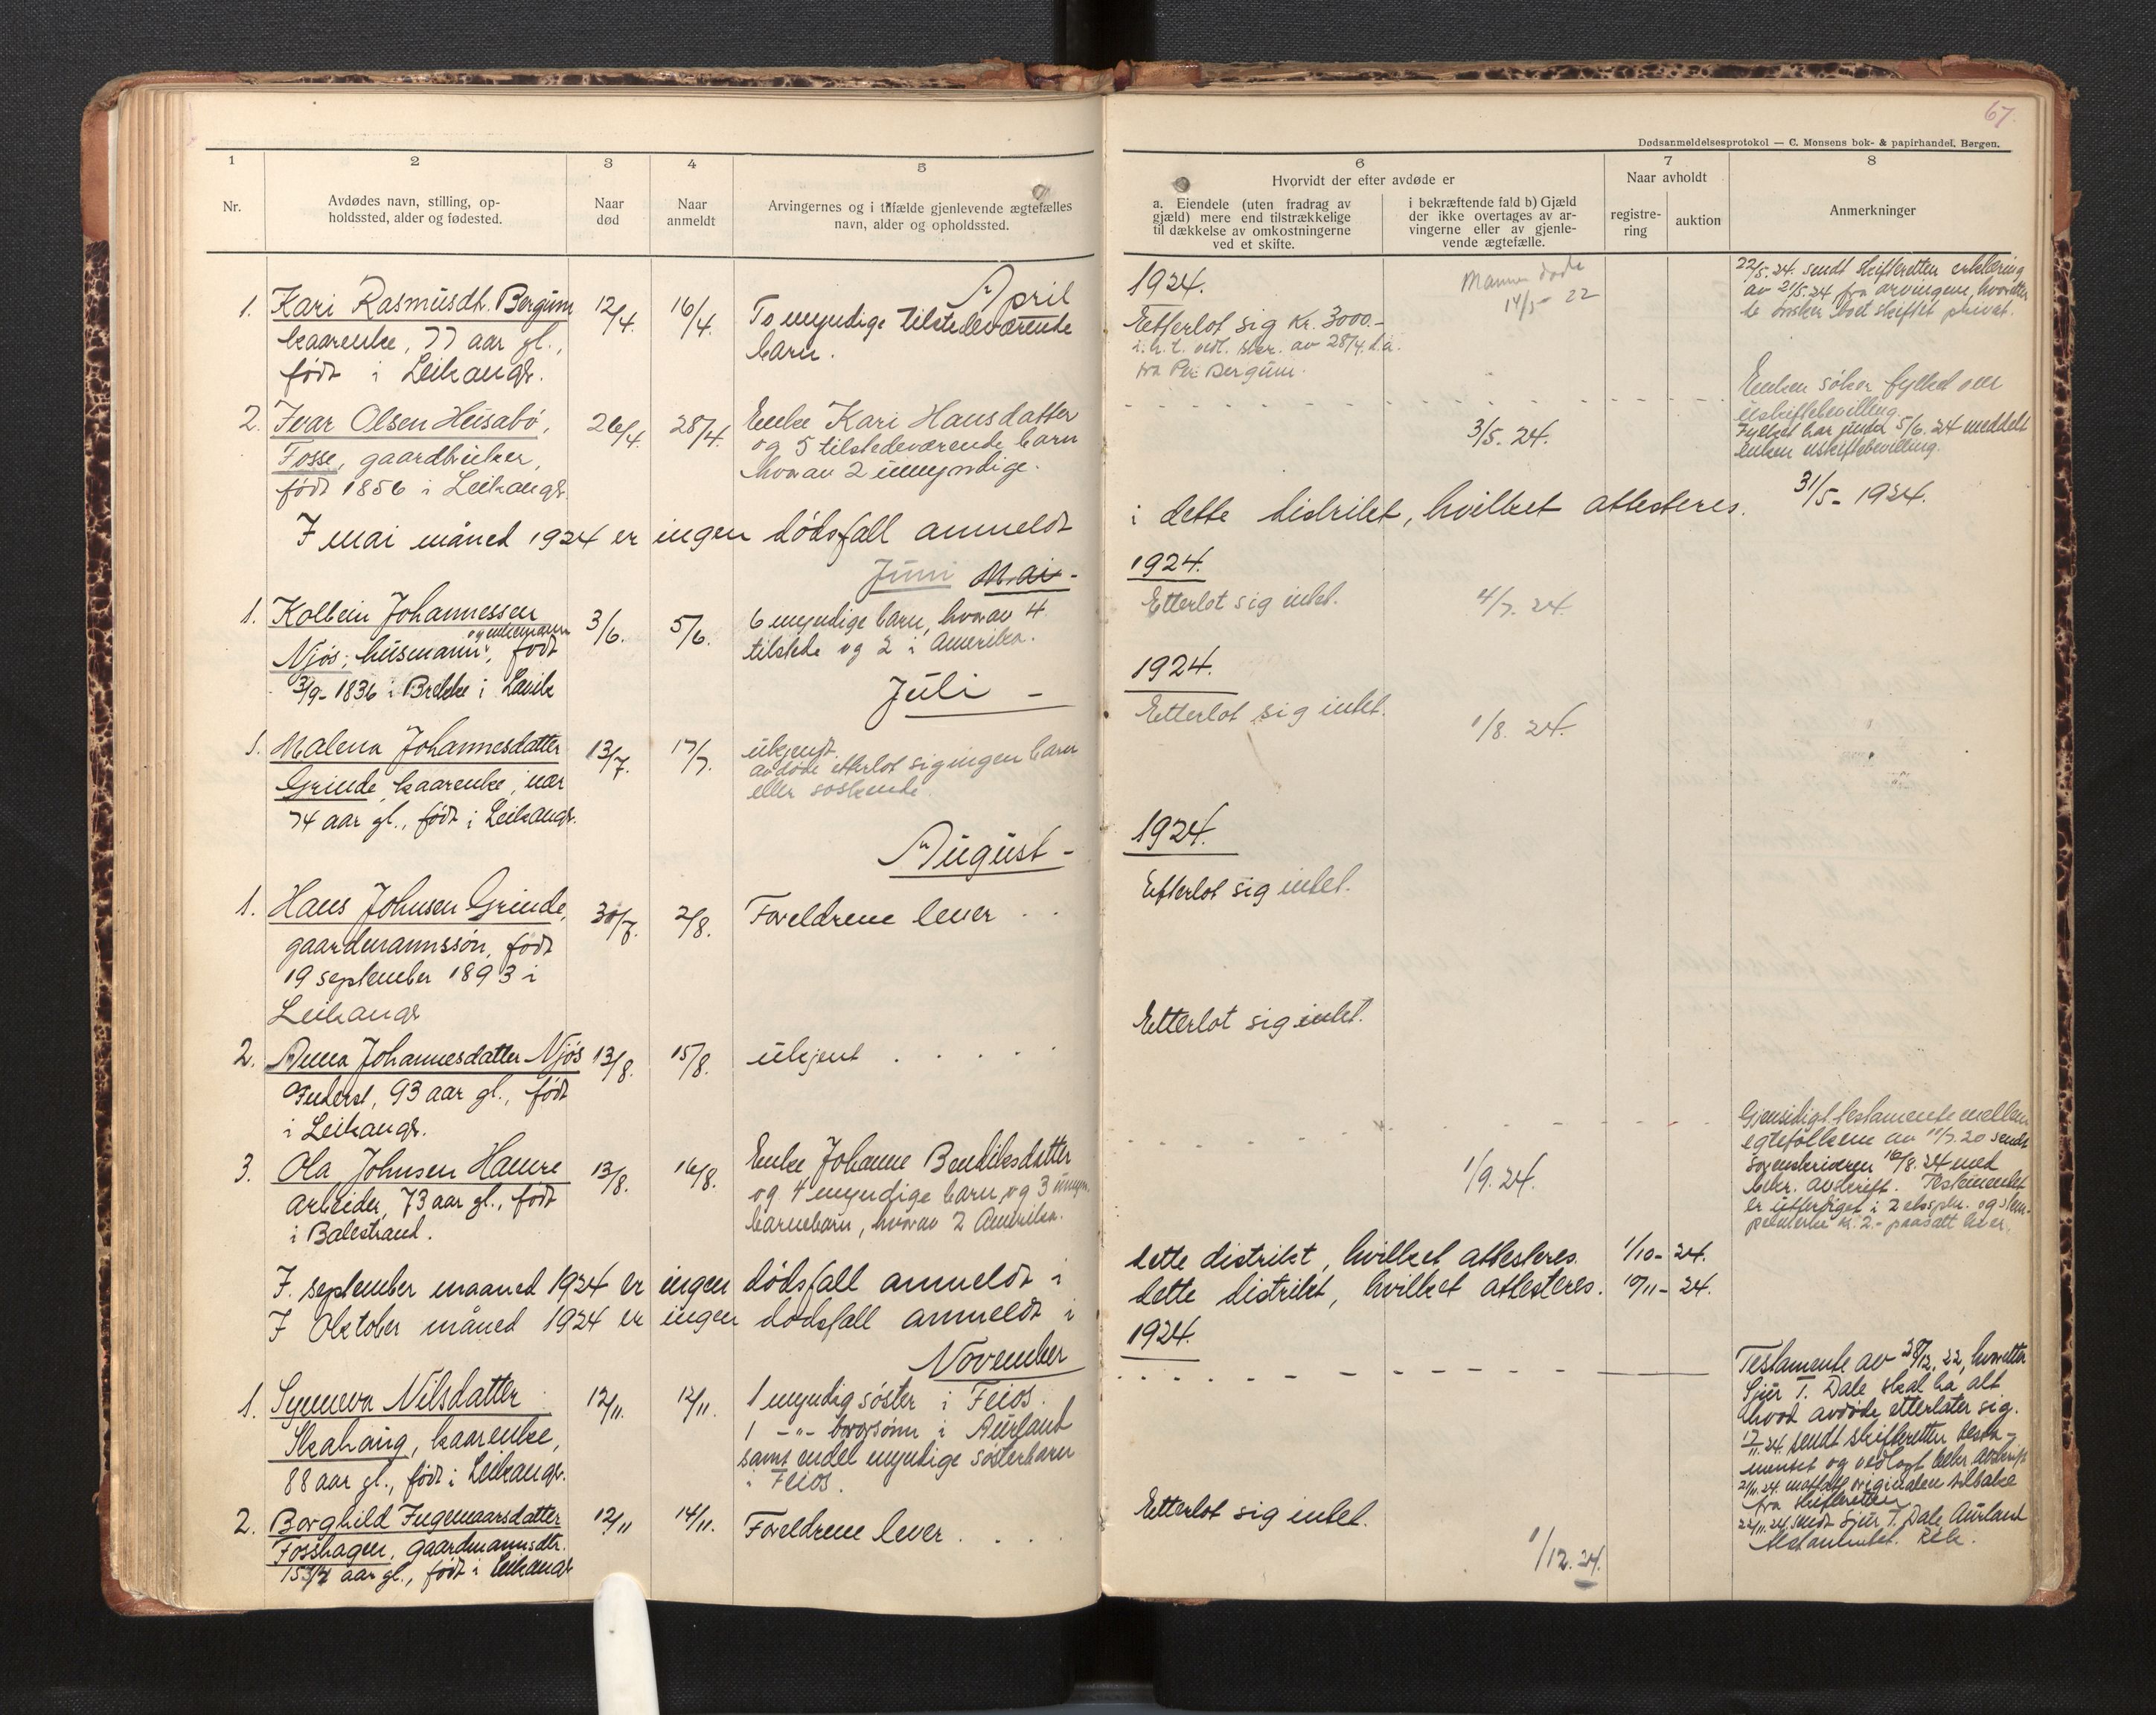 67.
Dødsanmeldelsesprotokol — C. Monsens bok- & papirhandel. Bergen.
1
Nr.
2
Avdødes navn, stilling, op-
holdssted, alder og fødested.
3
Naar
død
4
Naar
anmeldt
5
Arvingernes og i tilfælde gjenlevende ægtefælles
navn, alder og opholdssted.
6
Hvorvidt der efter avdøde er
a. Eiendele (uten fradrag av
gjæld) mere end tilstrækkelige
til dækkelse av omkostningerne
ved et skifte.
i bekræftende fald b) Gjæld
der ikke overtages av ar-
vingerne eller av gjenle-
vende ægtefælle.
7
Naar avholdt
registre-
ring
auktion
8
Anmerkninger
April
1924.
1. Kari Rasmusdt. Bergum
kaarenke, 77 aar gl.,
født i Leikangr.
12/4.
16/4.
To myndige tilstedeværende
barn.
Efterlot sig Kr. 3000.-
i.h.t. vedl. skr. av 28/4. d.å.
fra Per Bergum.
Mannen døde
14/5- 22
22/5. 24. sendt skifteretten erklæring
av 21/5. 24 fra arvingene, hvoretter
de ønsker boet skiftet privat.
2. Ivar Olsen Husabø,
Fosse, gaardbruker,
født 1856 i Leikangr.
26/4.
28/4.
Enke Kari Hansdatter
og 5 tilstedeværende barn
hvorav 2 umyndige.
3/5. 24.
Enken søker fylket om
uskiftebevilling.
Fylket har under 5/6. 24 meddelt
enken uskiftebevilling.
I mai måned 1924 er ingen dødsfall anmeldt
i dette distrikt, hvilket attesteres. 31/5- 1924.
Juni Mai -
1924.
1. Kolbein Johannessen
Njøs; husmann, født
3/9- 1836 i Brekke i Lavik
3/6.
5/6.
6 myndige barn, hvorav 4
tilstede og 2 i Amerika.
Etterlot sig intet.
4/7. 24.
Juli -
1924.
1. Malena Johannesdatter
Grinde, kaarenke, nær
74 aar gl., født i Leikangr.
13/7.
17/7.
ukjendt.
avdøde etterlot sig ingen barn
eller søskende.
Etterlot sig intet.
1/8. 24.
August -
1924.
1. Hans Johnsen Grinde,
gaardmannssøn, født
19 september 1893 i
Leikangr
30/7.
2/8.
Foreldrene lever . .
Efterlot sig intet.
2. Anna Johannesdatter Njøs
Inderst, 93 aar gl., født
i Leikangr.
13/8.
15/8.
ukjent . . . . .
Etterlot sig intet.
3. Ola Johnsen Hamre
arbeider, 73 aar gl., født
i Balestrand.
13/8.
16/8.
Enke Johanne Bendiksdatter
og 4 myndige barn, og 3 umyn.
barnebarn, hvorav 2 Amerika.
1/9. 24.
Gjensidigt testamente mellem
egtefolkene av 11/7. 20 sendt
sorenskriveren 16/8. 24 med
bekr. avskrift. Testamentet
er utferdiget i 2 eksplr. og stem-
pelmerke kr. 2.- paasatt hver.
I september maaned 1924 er ingen dødsfall anmeldt i
dette distrikt, hvilket attesteres. 1/10- 24.
I Oktober måned 1924 er ingen dødsfall anmeldt i
dette distrikt, hvilket attesteres. 10/11- 24.
November
1924.
1. Synneva Nilsdatter
Skahaug, kaarenke,
88 aar gl., født i Leikangr.
12/11.
12/11.
1 myndig søster i Feios.
1 -"- brorsønn i Aurland
samt endel myndige søsterbarn
i Feios.
Testamente av 28/12. 22, hvoretter
Sjur T. Dale skal ha alt
hvad avdøde etterlater sig.
17/11. 24. sendt skifteretten testa-
mentet og vedlagt bekr. avskrift
21/11. 24. mottatt originalen tilbake
fra skifteretten
22/11. 24. sendt Sjur T. Dale, Aurland
testamentet.
2. Borghild Ingemaarsdatter
Fosshagen, gaardmannsdtr.
15 3/4 aar gl., født i Leikangr
12/11
14/11.
Foreldrene lever . . . .
Etterlot sig intet.
1/12. 24.